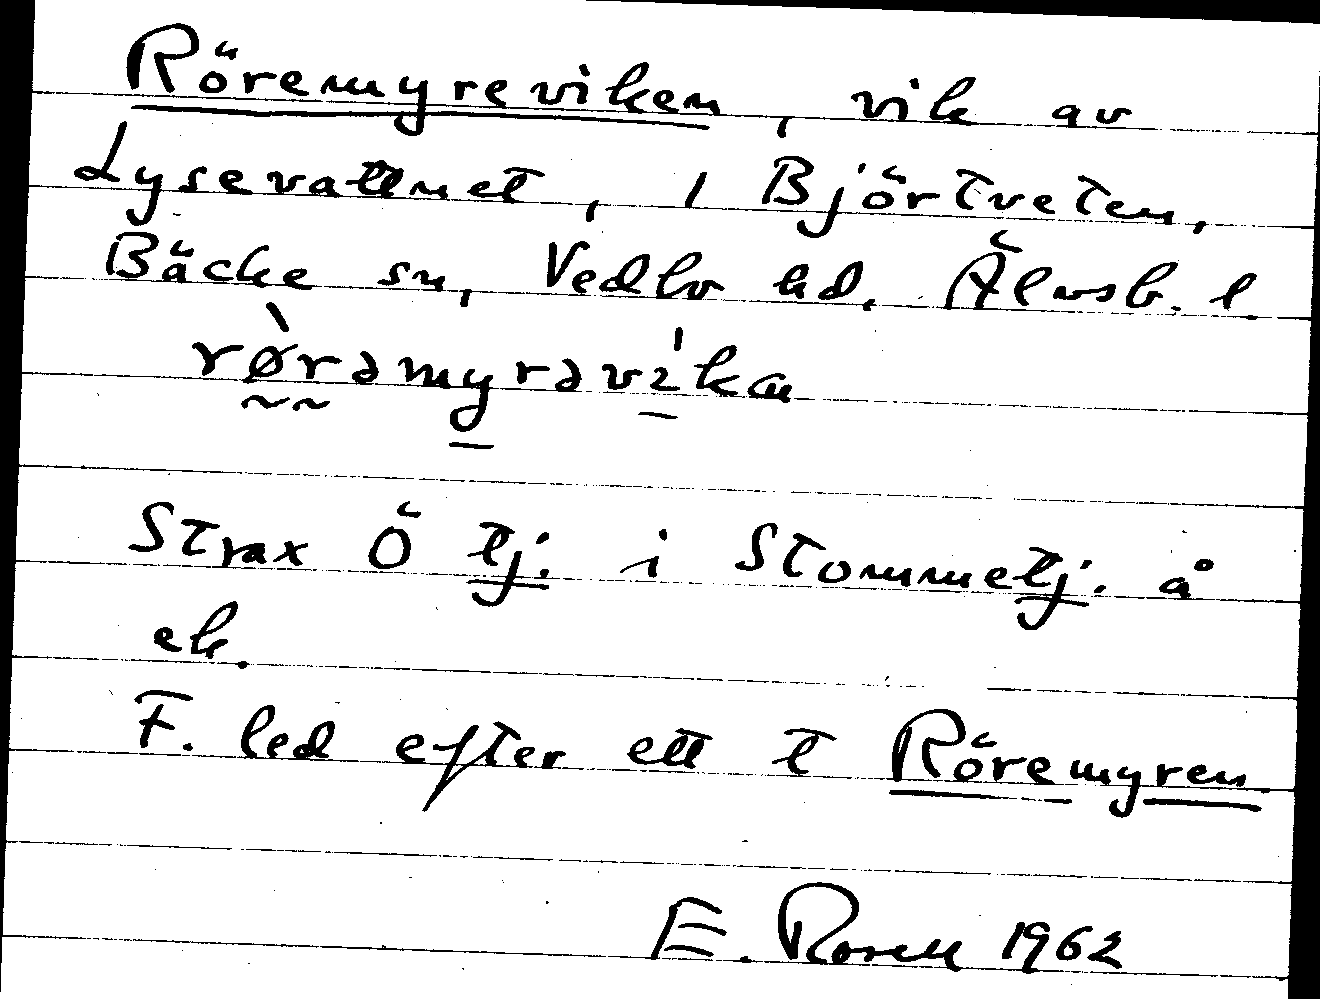 Röremyreviken, vik av
Lysevattnet, i Björtveten,
Bäcke sn, Vedbo hd. Älvsb. l.
rø̀rəmyrəvi̍kɑ
Strax Ö tj. i Stommetj. å
ek.
F. led efter ett t Röremyren.
E. Rosell 1962